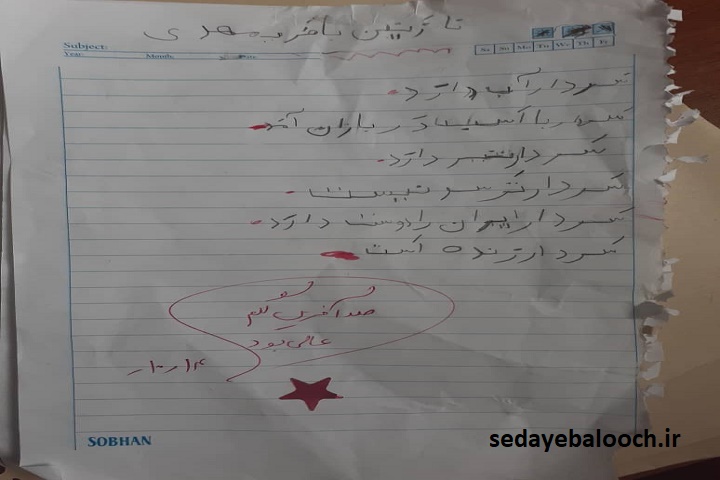 نازنین باقر مهدی
Subject:
Year: Month: Date:
Sa Su Mo Tu We Th Fr
سردار آب دارد.
سردار با اسب در باران آمد
سردار دارد.
سردار ترسو نیست.
سردار ایران را دوست دارد.
سردار زنده است
صد آفرین گلم
عالی بود
SOBHAN
sedayebalooch.ir